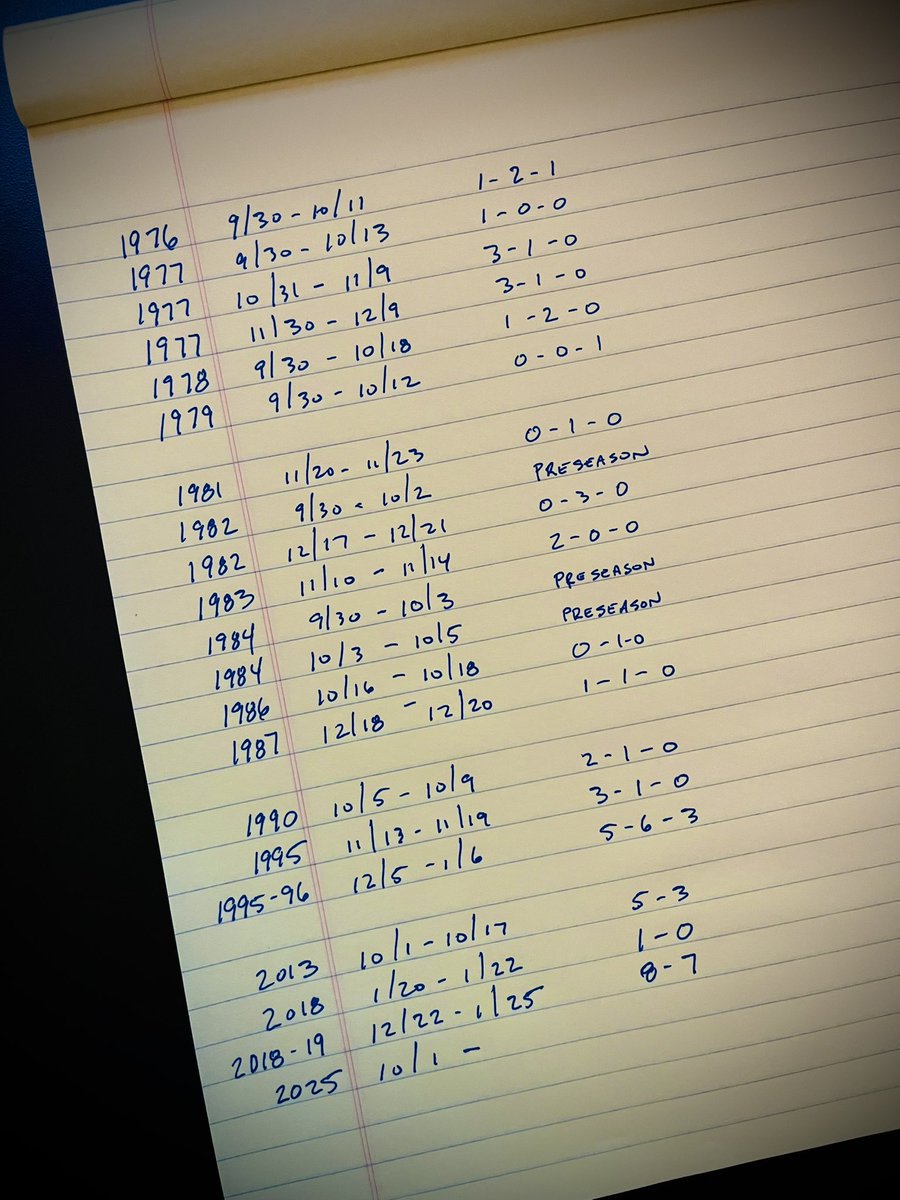 1976 9/30 - 10/11 1-2-1
1977 9/30 - 10/13 1-0-0
1977 10/31 - 11/9 3-1-0
1977 11/30 - 12/9 3-1-0
1978 9/30 - 10/18 1-2-0
1979 9/30 - 10/12 0-0-1
1981 11/20 - 11/23 0-1-0
1982 9/30 - 10/2 PRESEASON
1982 12/17 - 12/21 0-3-0
1983 11/10 - 11/14 2-0-0
1984 9/30 - 10/3 PRESEASON
1984 10/3 - 10/5 PRESEASON
1986 10/16 - 10/18 0-1-0
1987 12/18 - 12/20 1-1-0
1990 10/5 - 10/9 2-1-0
1995 11/13 - 11/19 3-1-0
1995-96 12/5 - 1/6 5-6-3
2013 10/1 - 10/17 5-3
2018 1/20 - 1/22 1-0
2018-19 12/22 - 1/25 8-7
2025 10/1 -